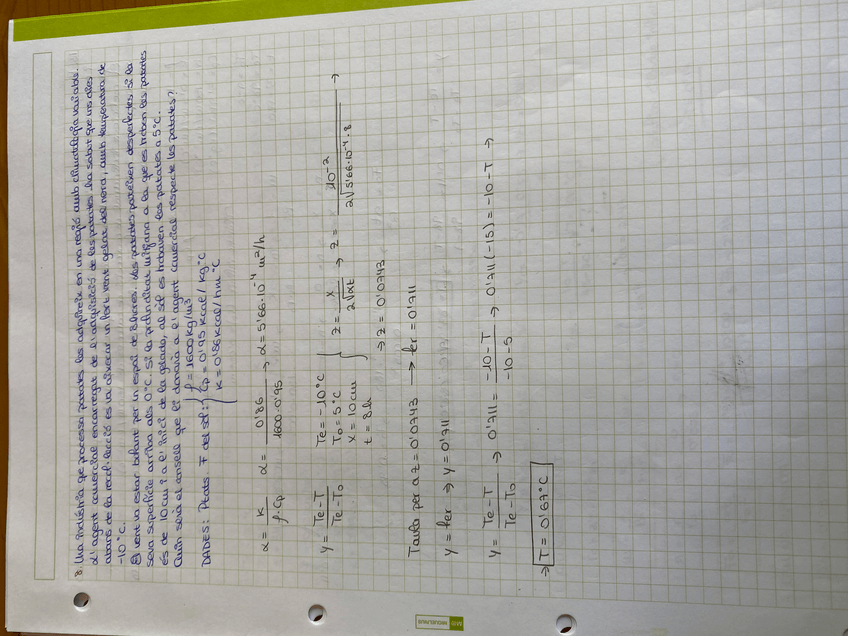 8. Una indústria que processa patates les adquireix en una regió amb climatologia variable.
L'agent comercial encarregat de l'adquisició de les patates ha sabut que uns dies
abans de la recol·lecció es va aixecar un fort vent gelat del nord, amb temperatura de
-10 °C.
El vent va estar bufant per un espai de 8 hores. Les patates pateixen desperfectes si la
seva superfície arriba als 0 °C. Si la profunditat mitjana a la que es troben les patates
és de 10 cm i a l'inici de la gelada, al sòl es trobaven les patates a 5 °C.
Quin serià el consell que li donaria a l'agent comercial respecte les patates?
DADES: Ptats. F del sòl:
ρ = 1600 kg/m³
Cp = 0'95 kcal/kg °C
K = 0'86 kcal/hm °C
α = K / ρ·Cp α = 0'86 / 1600·0'95 → α = 5'66·10⁻⁴ m²/h
y = Te - T / Te - T₀
Te = -10 °C
T₀ = 5 °C
x = 10 cm
t = 8 h
z = x / 2√αt → z = 10⁻² / 2√5'66·10⁻⁴·8 →
→ z = 0'0743
Tanto per a z = 0'0743 → fer = 0'711
y = fer ⇒ y = 0'711
y = Te - T / Te - T₀ → 0'711 = -10 - T / -10 - 5 → 0'711(-15) = -10 - T →
→ T = 0'67 °C
MIQUELRIUS